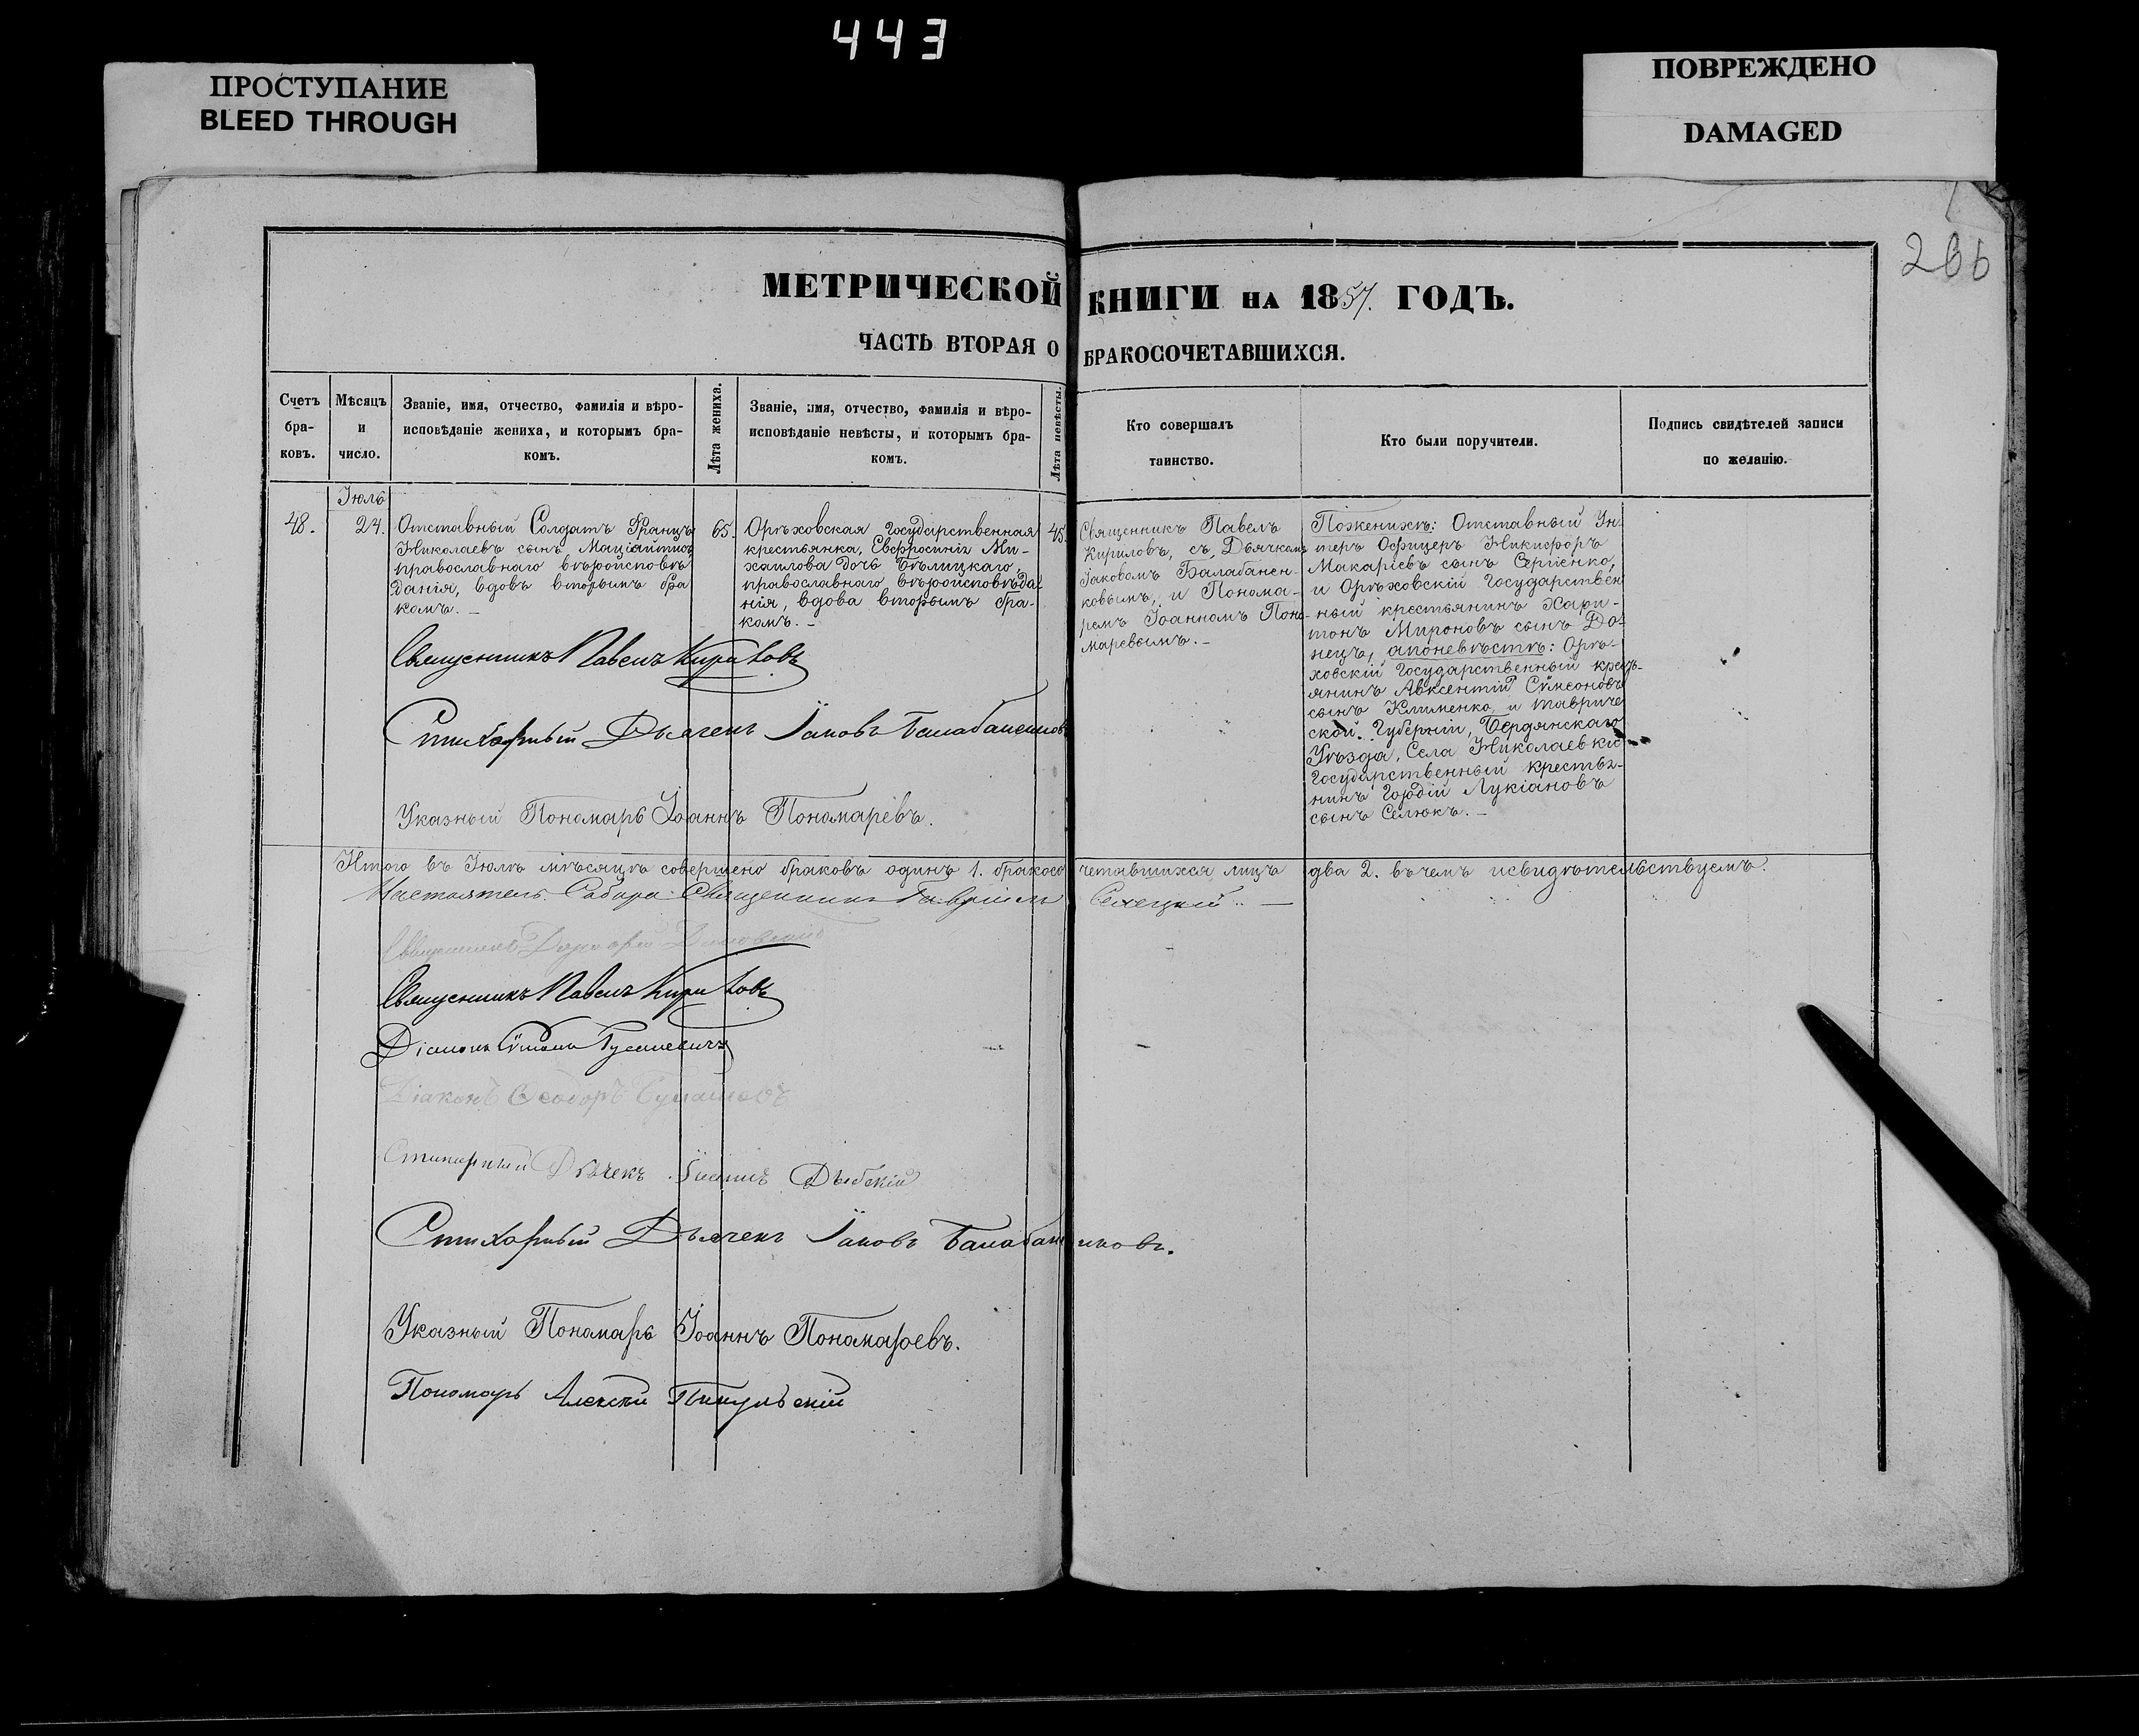 443
ПРОСТУПАНИЕ
BLEED THROUGH
ПОВРЕЖДЕНО
DAMAGED
266
МЕТРИЧЕСКОЙ КНИГИ НА 1857. ГОДЪ.
ЧАСТЬ ВТОРАЯ О БРАКОСОЧЕТАВШИХСЯ.
Счетъ
бра-
ковъ.
Мѣсяцъ
и
число.
Званіе, имя, отчество, фамилія и вѣро-
исповѣданіе жениха, и которымъ бра-
комъ.
Лѣта жениха.
Званіе, имя, отчество, фамилія и вѣро-
исповѣданіе невѣсты, и которымъ бра-
комъ.
Лѣта невѣсты.
Кто совершалъ
таинство.
Кто были поручители.
Подпись свидѣтелей записи
по желанію.
48.
Іюль
24.
Отставный Солдатъ Францъ
Николаевъ сынъ
православнаго вѣроисповѣ
данія, вдовъ вторымъ бра
комъ. –
65.
Орѣховская Государственная
крестьянка, Евфросинія Ми-
хаилова дочь Бѣлицкаго,
православнаго вѣроисповѣда
нія, вдова вторымъ бра-
комъ. –
45.
Священникъ Павелъ
Кириловъ, съ Дьячкомъ
Іаковомъ Балабанен-
ковымъ, и Понома-
ремъ Іоанномъ Поно-
маревымъ. –
Поженихѣ: Отставный Ун
теръ Офицеръ Никифоръ
Макаріевъ сынъ Сергіенко,
и Орѣховскій Государствен
ный крестьянинъ Хари-
тонъ Мироновъ сынъ До-
нецъ, апоневѣстѣ: Орѣ-
ховскій Государственный кресть-
янинъ Авксентій Симеоновъ
сынъ Клименко, и Тавриче
ской Губерніи, Бердянскаго
Уѣзда, Села Николаевки
Государственный крестья-
нинъ Гордій Лукіановъ
сынъ Селюкъ. –
Священникъ Павелъ Кириловъ
Стихарный Дьячекъ Іаковъ Балабаненковъ
Указный Пономарь Іоаннъ Пономаревъ.
Итого въ Іюлѣ мѣсяцѣ совершено браковъ одинъ 1. бракосо четавшихся лицъ два 2. въ чемъ исвидѣтельствуемъ.
Настоятель Собора Священникъ Гавріилъ
Священникъ
Священникъ Павелъ Кириловъ
Діаконъ
Діаконъ Ѳеодоръ
Стихарный Дьячекъ Іоаннъ
Стихарный Дьячекъ Іаковъ Балабаненковъ.
Указный Пономарь Іоаннъ Пономаревъ.
Пономарь Алексѣй